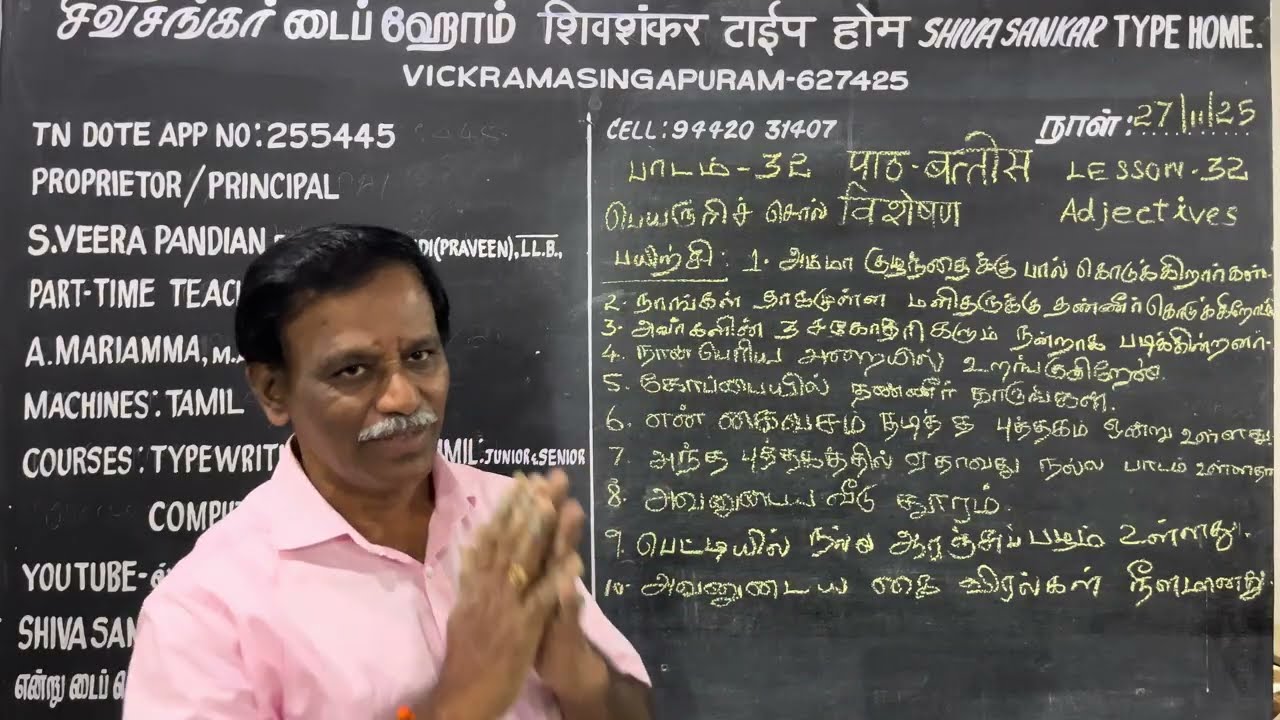 சிவசங்கர் டைப் ஹோம் शिवशंकर टाईप होम SHIVA SANKAR TYPE HOME.
VICKRAMASINGAPURAM-627425
TN DOTE APP NO: 255445
PROPRIETOR/PRINCIPAL
S.VEERA PANDIAN (PRAVEEN), LL.B.,
PART-TIME
A.MARIAMMA,
MACHINES: TAMIL
COURSES: JUNIOR & SENIOR
YOUTUBE-
என்று டைப்
CELL: 94420 31407
நாள்: 27/11/25
பாடம் - 32 पाठ-बत्तीस LESSON-32
பெயருரிச் சொல் विशेषण Adjectives
பயிற்சி: 1. அம்மா குழந்தைக்கு பால் கொடுக்கிறார்கள்.
2. நாங்கள் தாகமுள்ள மனிதருக்கு தண்ணீர் கொடுக்கிறோம்
3. அவர்களின் 3 சகோதரிகளும் நன்றாக படிக்கின்றனர்.
4. நான் பெரிய அறையில் உறங்குகிறேன்.
5. கோப்பையில் தண்ணீர் தாருங்கள்.
6. என் கைவசம் தடித்த புத்தகம் ஒன்று உள்ளது.
7. அந்த புத்தகத்தில் ஏதாவது நல்ல பாடம் உள்ளதா
8. அவனுடைய வீடு தூரம்.
9. பெட்டியில் நல்ல ஆரஞ்சுப்பழம் உள்ளது.
10. அவனுடைய கை விரல்கள் நீளமானது